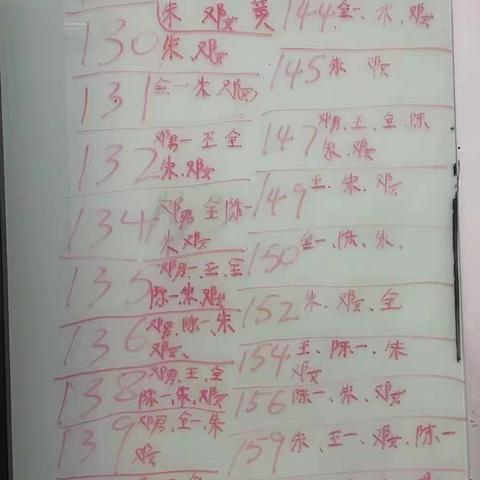 朱 邓女 黄
130 朱、邓女
131 全一 朱 邓女
132 邓男一 王 全
朱、邓女
134 邓男 全 陈一
朱 邓女
135 邓男一、王、全
陈一朱、邓女
136 邓男、陈一、朱
邓女、
138 邓男、王、全
陈一、朱、邓女
139 邓男、全一、朱
邓女
144 全一、朱、邓女
145 朱 邓女
147 邓男、王、全、陈
朱、邓女
149 王、朱、邓女
150 全一、陈、朱、
152 朱、邓女、全
154 王、陈一、朱
邓女
156 陈一、朱、邓女
159 朱、王一、邓女、陈一